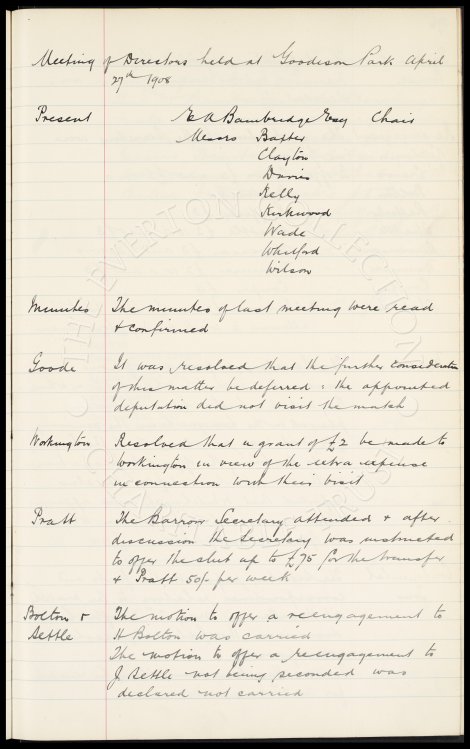 Meeting of Directors held at Goodison Park April
27th 1908
Present E A Bainbridge Esq Chair
Messrs Baxter
Clayton
Davies
Kelly
Kirkwood
Wade
Whitford
Wilson
Minutes The minutes of last meeting were read
& confirmed
Goode It was resolved that the further consideration
of this matter be deferred: the appointed
deputation did not visit the match
Workington Resolved that a grant of £2 be made to
Workington in view of the extra expense
in connection with their visit
Pratt The Barrow Secretary attended & after
discussion the Secretary was instructed
to offer the club up to £75 for the transfer
& Pratt 50/- per week
Bolton & The motion to offer a reengagement to
Settle H Bolton was carried
The motion to offer a reengagement to
J Settle not being seconded was
declared not carried
THE EVERTON COLLECTION
CHARITABLE TRUST